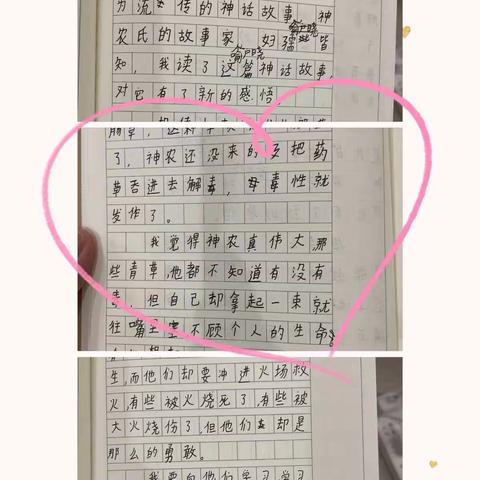 为流传的神话故事,神
农氏的故事家喻户晓妇孺皆
知,我读了这篇神话故事,
对它有了新的感悟。
了,神农还没来的及把药
草吞进去解毒,毒性就
发作了。
我觉得神农真伟大,那
些青草,他都不知道有没有
毒,但自己却拿起一束就
往嘴里塞不顾个人的生命
生,而他们却要冲进火场救
火,有些被火烧死了,有些被
大火烧伤了,但他们却是
那么的勇敢。
我要向他们学习,学习